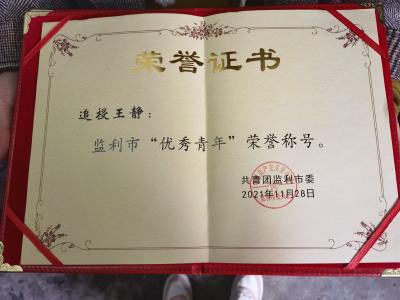 荣誉证书
追授王静：
监利市“优秀青年”荣誉称号。
共青团监利市委
2021年11月28日